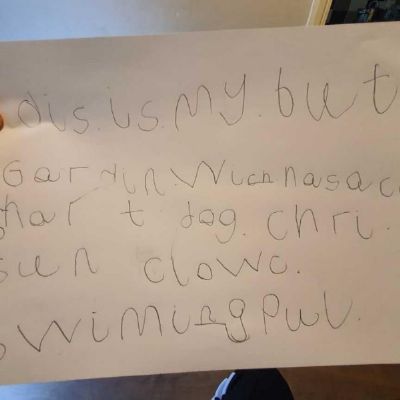 dis.is.My.but
Gardin.Wich nasac
har t dog. chri.
sun clowc.
swiMingPul.